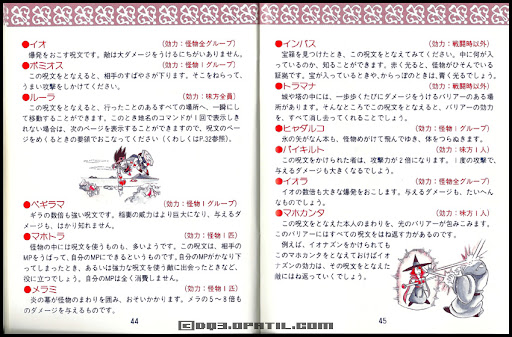 ●イオ (効力：怪物全グループ)
爆発をおこす呪文です。敵は大ダメージをうけるにちがいありません。
●ボミオス (効力：怪物1グループ)
この呪文をとなえると、相手のすばやさが下ります。そこをねらって、
うまい攻撃をしかけてください。
●ルーラ (効力：味方全員)
この呪文をとなえると、行ったことのあるすべての場所へ、一瞬にし
て移動することができます。このとき地名のコマンドが1回で表示しき
れない場合は、次のページを表示することができますので、呪文のペー
ジをめくるときの要領でおこなってください（くわしくはP.32参照）。
●ベギラマ (効力：怪物1グループ)
ギラの数倍も強い呪文です。稲妻の威力はより巨大になり、与えるダ
メージも、はかり知れません。
●マホトラ (効力：怪物1匹)
怪物の中には呪文を使うものも、多いようです。この呪文は、相手の
MPをうばって、自分のMPにできるというものです。自分のMPがかなり下
ってしまったとき、あるいは強力な呪文を使う敵に出会ったときなど、
役に立つでしょう。自分のMPは全く消費しません。
●メラミ (効力：怪物1匹)
炎の幕が怪物のまわりを囲み、おそいかかります。メラの5〜8倍も
のダメージを与えるものです。
44
●インパス (効力：戦闘時以外)
宝箱を見つけたとき、この呪文をとなえてみてください。中に何が入
っているのか、知ることができます。赤く光ると、怪物がひそんでいる
証拠です。宝が入っているときや、からっぽのときは、青く光るでしょう。
●トラマナ (効力：戦闘時以外)
城や塔の中には、一歩歩くたびにダメージをうけるバリアーのある場
所があります。そんなところでこの呪文をとなえると、バリアーの効力
を、すべて消し去ってくれることでしょう。
●ヒャダルコ (効力：怪物1グループ)
氷の矢がなん本も、怪物めがけて飛んでゆき、体をつらぬきます。
●バイキルト (効力：味方1人)
この呪文をかけられた者は、攻撃力が2倍になります。1度の攻撃で、
与えるダメージも大きくなるでしょう。
●イオラ (効力：怪物全グループ)
イオの数倍も大きな爆発をおこします。与えるダメージも、たいへん
なものでしょう。
●マホカンタ (効力：味方1人)
この呪文をとなえた本人のまわりを、光のバリアーが包みこみます。
このバリアーにはすべての呪文をはね返す力があるのです。
例えば、イオナズンをかけられても
このマホカンタをとなえておけばイオ
ナズンの効力は、その呪文をとなえた
敵にはね返っていくでしょう。
45
©DQ3.OPATIL.COM